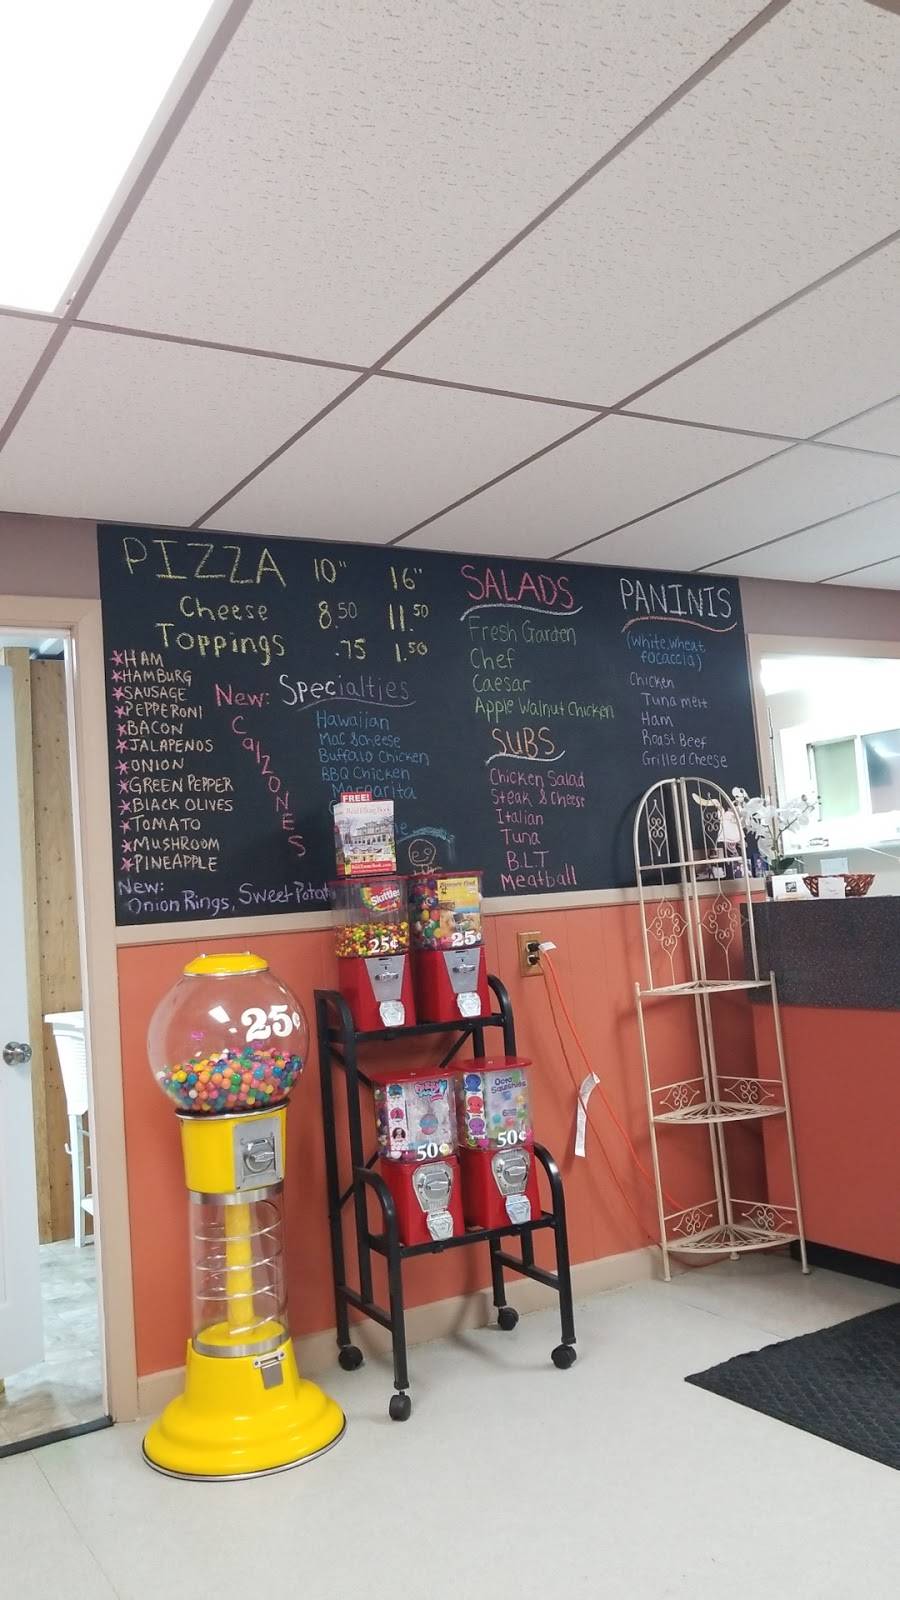 PIZZA 10" 16"
Cheese 8.50 11.50
Toppings .75 1.50
HAM
HAMBURG
SAUSAGE
PEPPERONI
BACON
JALAPENOS
ONION
GREEN PEPPER
BLACK OLIVES
TOMATO
MUSHROOM
PINEAPPLE
New:
Onion Rings, Sweet Potat
New:
CalZONES
Specialties
Hawaiian
Mac & cheese
Buffalo Chicken
BBQ Chicken
Margarita
SALADS
Fresh Garden
Chef
Caesar
Apple Walnut Chicken
SUBS
Chicken Salad
Steak & Cheese
Italian
Tuna
B.L.T
Meatball
PANINIS
(White, wheat
focaccia)
Chicken
Tuna melt
Ham
Roast Beef
Grilled Cheese
FREE!
Skittles
25¢
25¢
25¢
50¢
Octo
Squishies
50¢